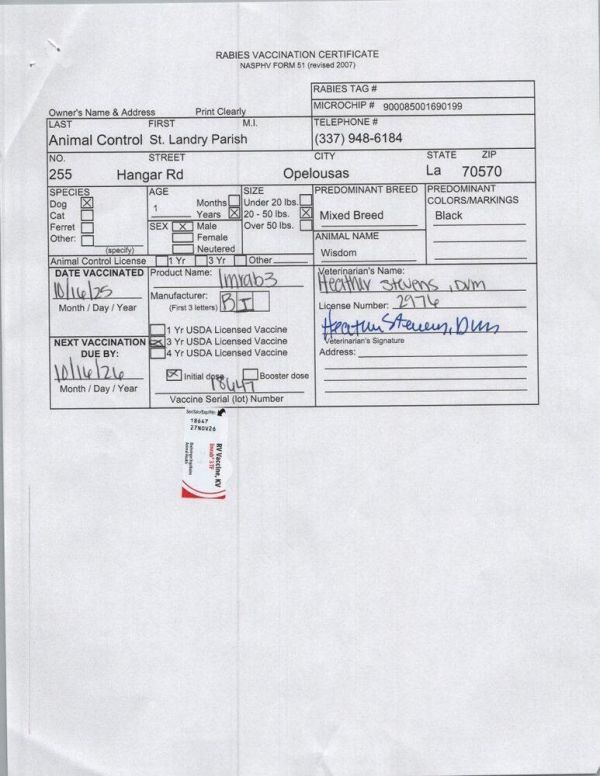 RABIES VACCINATION CERTIFICATE
NASPHV FORM 51 (revised 2007)
RABIES TAG #
Owner's Name & Address Print Clearly
MICROCHIP # 900085001690199
LAST FIRST M.I. TELEPHONE #
Animal Control St. Landry Parish (337) 948-6184
NO. STREET CITY STATE ZIP
255 Hangar Rd Opelousas La 70570
SPECIES AGE SIZE PREDOMINANT BREED PREDOMINANT COLORS/MARKINGS
Dog X Months Under 20 lbs.
Cat 1 Years X 20 - 50 lbs. X Mixed Breed Black
Ferret SEX X Male Over 50 lbs.
Other: Female ANIMAL NAME
(specify) Neutered Wisdom
Animal Control License 1 Yr 3 Yr Other
DATE VACCINATED Product Name: Imrab3 Veterinarian's Name:
10/16/25 Heather Stevens, DVM
Month / Day / Year Manufacturer: BI License Number: 2976
(First 3 letters)
Heather Stevens, DVM
1 Yr USDA Licensed Vaccine Veterinarian's Signature
NEXT VACCINATION X 3 Yr USDA Licensed Vaccine Address:
DUE BY: 4 Yr USDA Licensed Vaccine
10/16/26 X Initial dose Booster dose
Month / Day / Year 18647
Vaccine Serial (lot) Number
18647
27NOV26
RV Vaccine, KV
Imrab® 3 TF
Boehringer Ingelheim
Animal Health